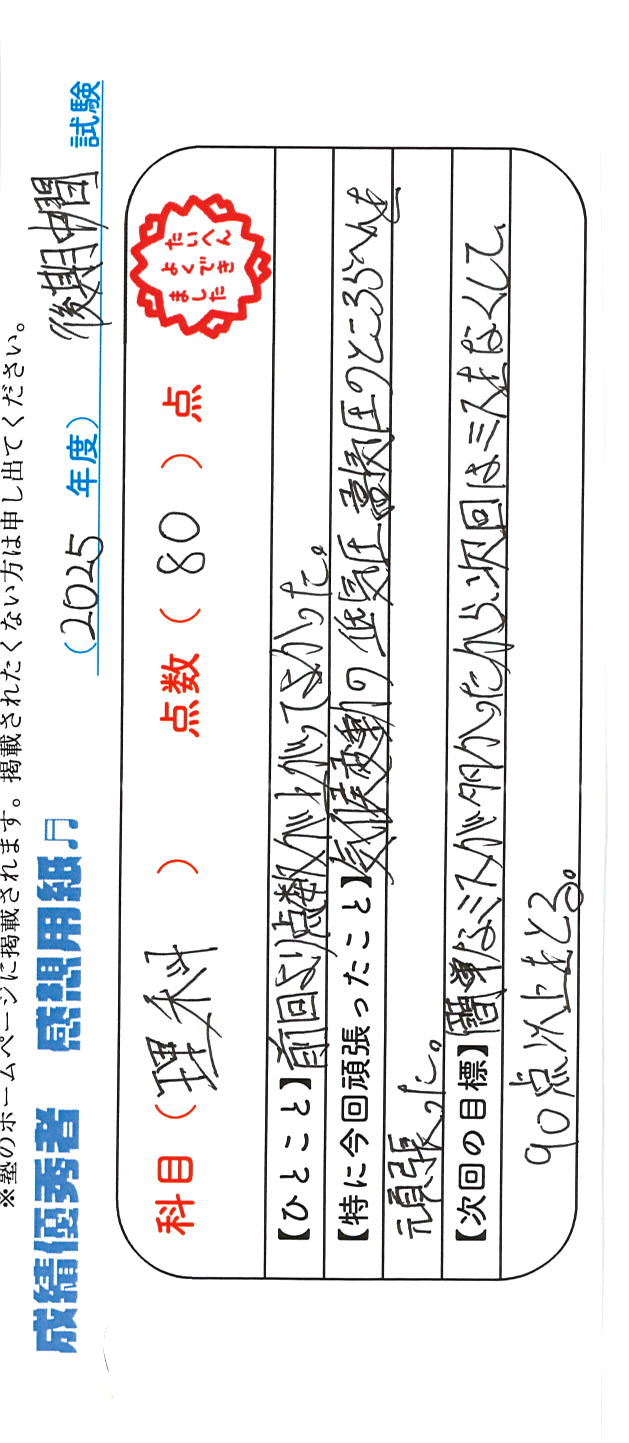 ※塾のホームページに掲載されます。掲載されたくない方は申し出てください。
成績優秀者 感想用紙♫ (2025 年度) 後期中間 試験
科目 ( 理科 ) 点数 ( 80 ) 点
たいへん
よくでき
ました
【ひとこと】前回より点数が上がってよかった。
【特に今回頑張ったこと】気候変動の低気圧高気圧のところらへんを
頑張った。
【次回の目標】簡単なミスが多かったから、次回はミスをなくして、
90点以上をとる。